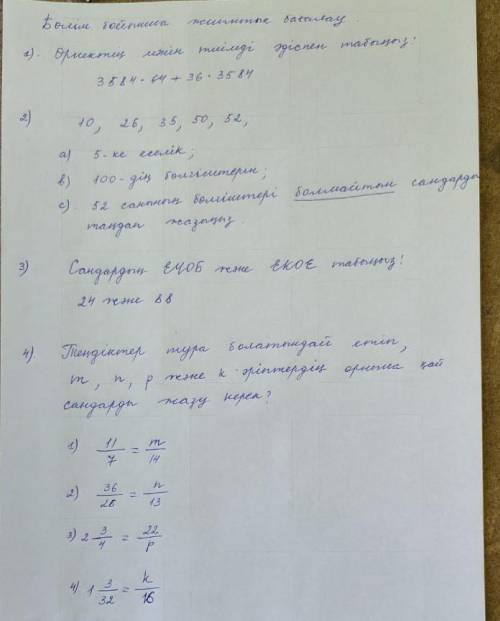 Бөлім бойынша жиынтық бағалау
1). Өрнектің мәнін тиімді әдіспен табыңыз:
3584 · 64 + 36 · 3584
2) 10, 26, 35, 50, 52,
a) 5-ке еселік;
b) 100-дің бөлгіштерін;
c). 52 санының бөлгіштері болмайтын сандарды
таңдап жазыңыз.
3) Сандардың ЕҮОБ және ЕКОЕ табыңыз!
24 және 88
4). Теңдіктер тура болатындай етіп,
m, n, p және k әріптердің орнына қай
сандарды жазу керек?
1) 11/7 = m/14
2) 36/26 = n/13
3) 2 3/4 = 22/p
4) 1 3/32 = k/16